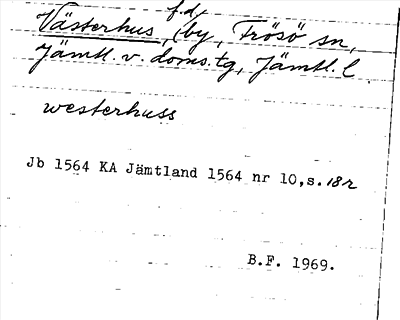 f.d.
Västerhus, (by, Frösö sn,
Jämtl. v. doms.tg, Jämtl. l.
westerhuss
Jb 1564 KA Jämtland 1564 nr 10,s.18r
B.F. 1969.